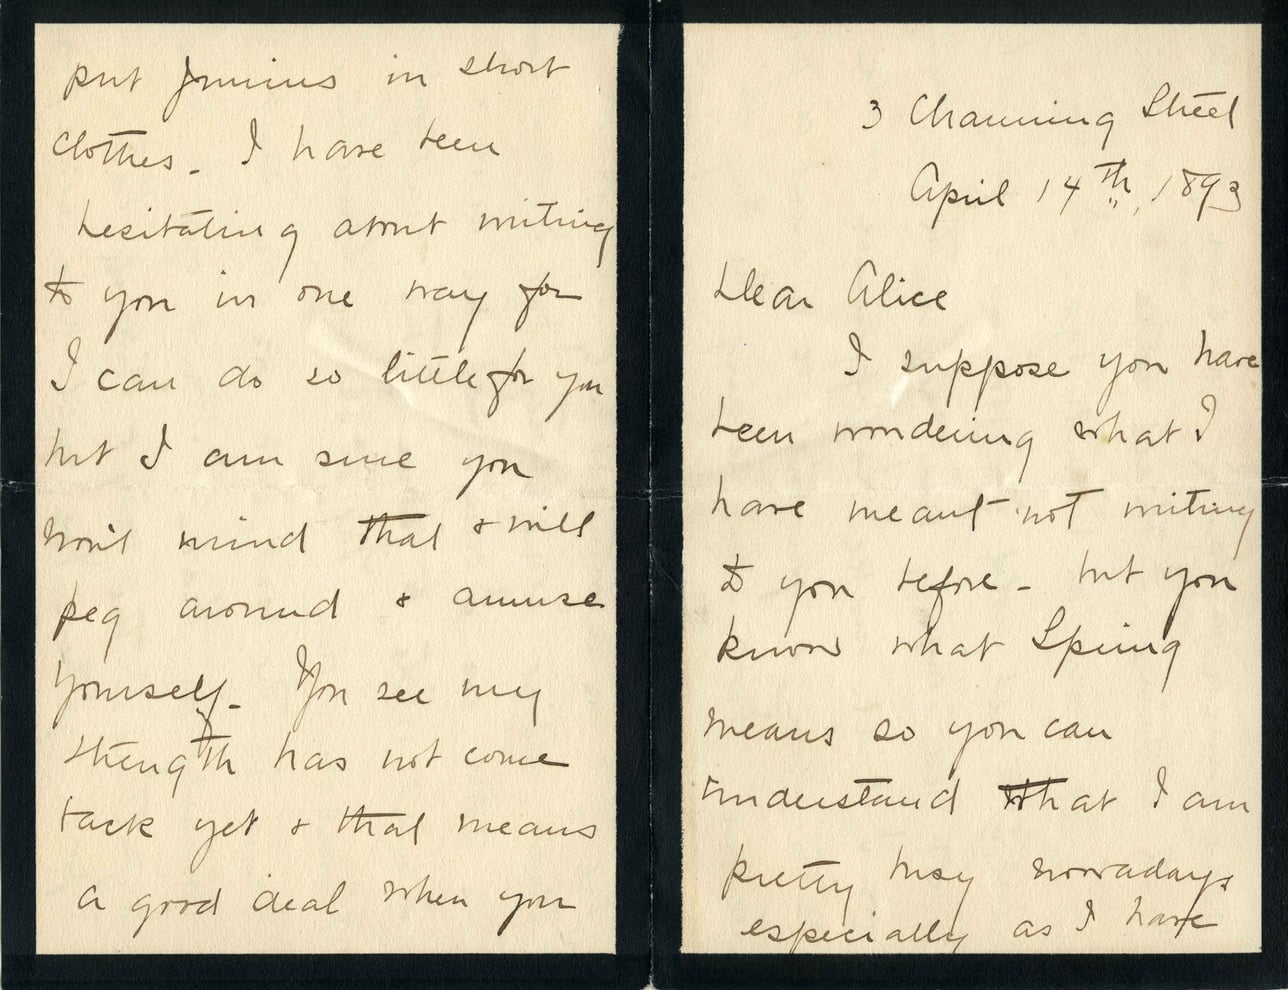 3 Channing Street
April 14th, 1893
Dear Alice
I suppose you have
been wondering what I
have meant not writing
to you before - but you
know what Spring
means so you can
understand that I am
pretty busy nowadays
especially as I have
put Junius in short
clothes. I have been
hesitating about writing
to you in one way for
I can do so little for you
but I am sure you
won't mind that & will
peg around & amuse
yourself. You see my
strength has not come
back yet & that means
a good deal when you